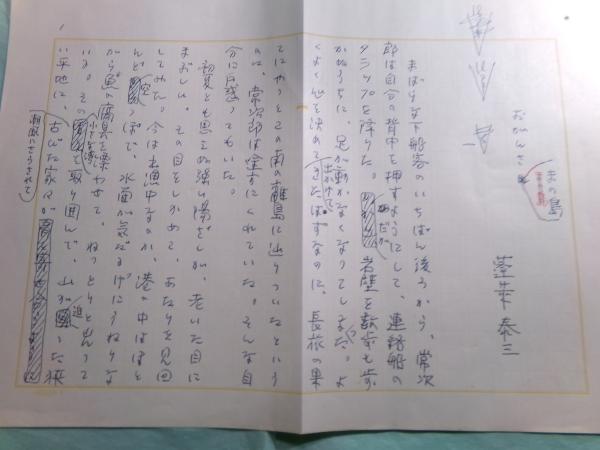 おばんざ
恋の島
蓬莱泰三
まばらな下船客のいちばん後ろから、常次
郎は自分の背中を押すようにして、連絡船の
タラップを降りた。だが岩壁を数歩も歩
かぬうちに、足が動かなくなってしまった。よ
くよく心を決めて出かけてきたはずなのに、長旅の果
てにやっとこの南の離島に辿りついたという
のに、常次郎は途方にくれていた。そんな自
分に戸惑ってもいた。
初夏とも思えぬ強い陽ざしが、老いた目に
まぶしい。その目をしかめて、あたりを見回
してみた。今は出漁中なのか、港の中はほと
んど空っぽで、水面が気だるげにうねりな
がら魚の腐臭を漂わせて、ねっとりと光って
いる。その小さな港を取り囲んで、山が迫った狭
い平地に、潮風にさらされて古びた家々が